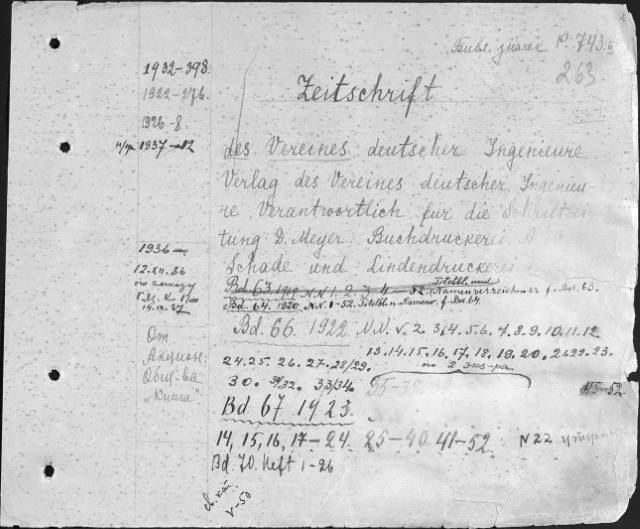 Библ. значек P. 743.
263
1932-398.
1922-276.
1926-8.
1937-12
Zeitschrift
des Vereines deutscher Ingenieure
Verlag des Vereines deutscher Ingenieu-
re Verantwortlich für die Schriftlei-
tung D. Meyer. Buchdruckerei
Schade und Lindendruckerei
1936-
12.XII.36
Titelbl. und
Bd. 63. 1919 N.N. 1. 2. 3. 4-52 Namenverzeichniss f. Bd. 63.
Bd. 64. 1920. N.N. 1-52. Titelbl. u. Namenv. f. Bd. 64.
Bd. 66. 1922 N.N. 1. 2. 3. 4. 5. 6. 7. 8. 9. 10. 11. 12
13. 14. 15. 16. 17. 18. 19. 20. 21. 22. 23.
24. 25. 26. 27. 28/29. по 2 экз-ра
30. 31/32. 33/34 35-38 45-52
От
Акцион.
Общ-ва
"Книга"
Bd. 67 1923.
14, 15, 16, 17-24. 25-40. 41-52. N 22 утерян
Bd. 70. Heft 1-26
V-50